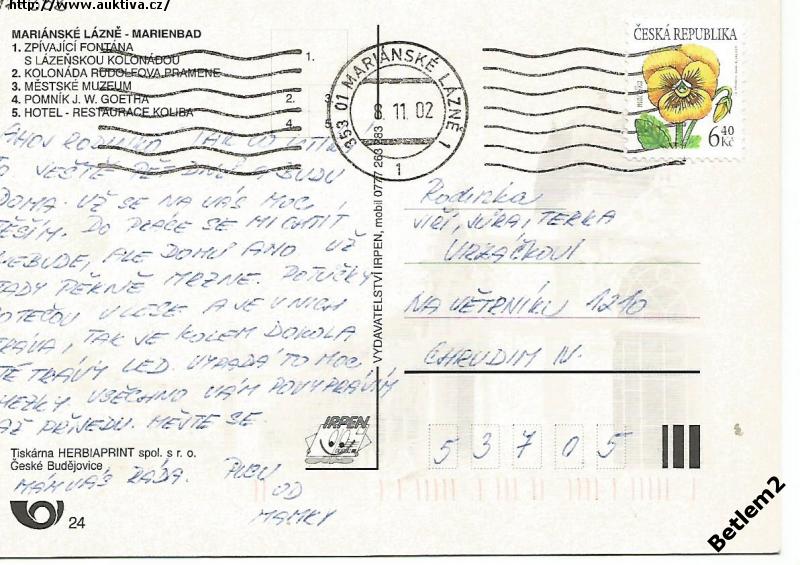 http://www.auktiva.cz/
MARIÁNSKÉ LÁZNĚ - MARIENBAD
1. ZPÍVAJÍCÍ FONTÁNA
S LÁZEŇSKOU KOLONÁDOU
2. KOLONÁDA RUDOLFOVA PRAMENE
3. MĚSTSKÉ MUZEUM
4. POMNÍK J. W. GOETHA
5. HOTEL - RESTAURACE KOLIBA
1.
2.
3.
4.
5.
353 01 MARIÁNSKÉ LÁZNĚ 1
8.11.02
1
ČESKÁ REPUBLIKA
6,40 Kč
AHOJ RODINKO TAK UŽ
TO JEŠTĚ PĚT DNŮ A BUDU
DOMA. UŽ SE NA VÁS MOC
TĚŠÍM. DO PRÁCE SE MI CHTÍT
NEBUDE, ALE DOMŮ ANO UŽ
TADY PĚKNĚ MRZNE. POTŮČKY
POTEČOU V LESE A JE V NICH
TRÁVA, TAK JE KOLEM DOKOLA
TÉ TRÁVY LED. VYPADÁ TO MOC
HEZKY VŠECHNO VÁM POVYPRÁVÍM
AŽ PŘIJEDU. MĚJTE SE
MÁM VÁS RÁDA. PUSU
OD
MAMKY
VYDAVATELSTVÍ IRPEN, mobil 0777 263 283
Rodinka
JIŘÍ, JÚRA, TERKA
NA VĚTRNÍKU 1210
CHRUDIM IV.
53705
IRPEN
Tiskárna HERBIAPRINT spol. s r. o.
České Budějovice
24
Betlem2